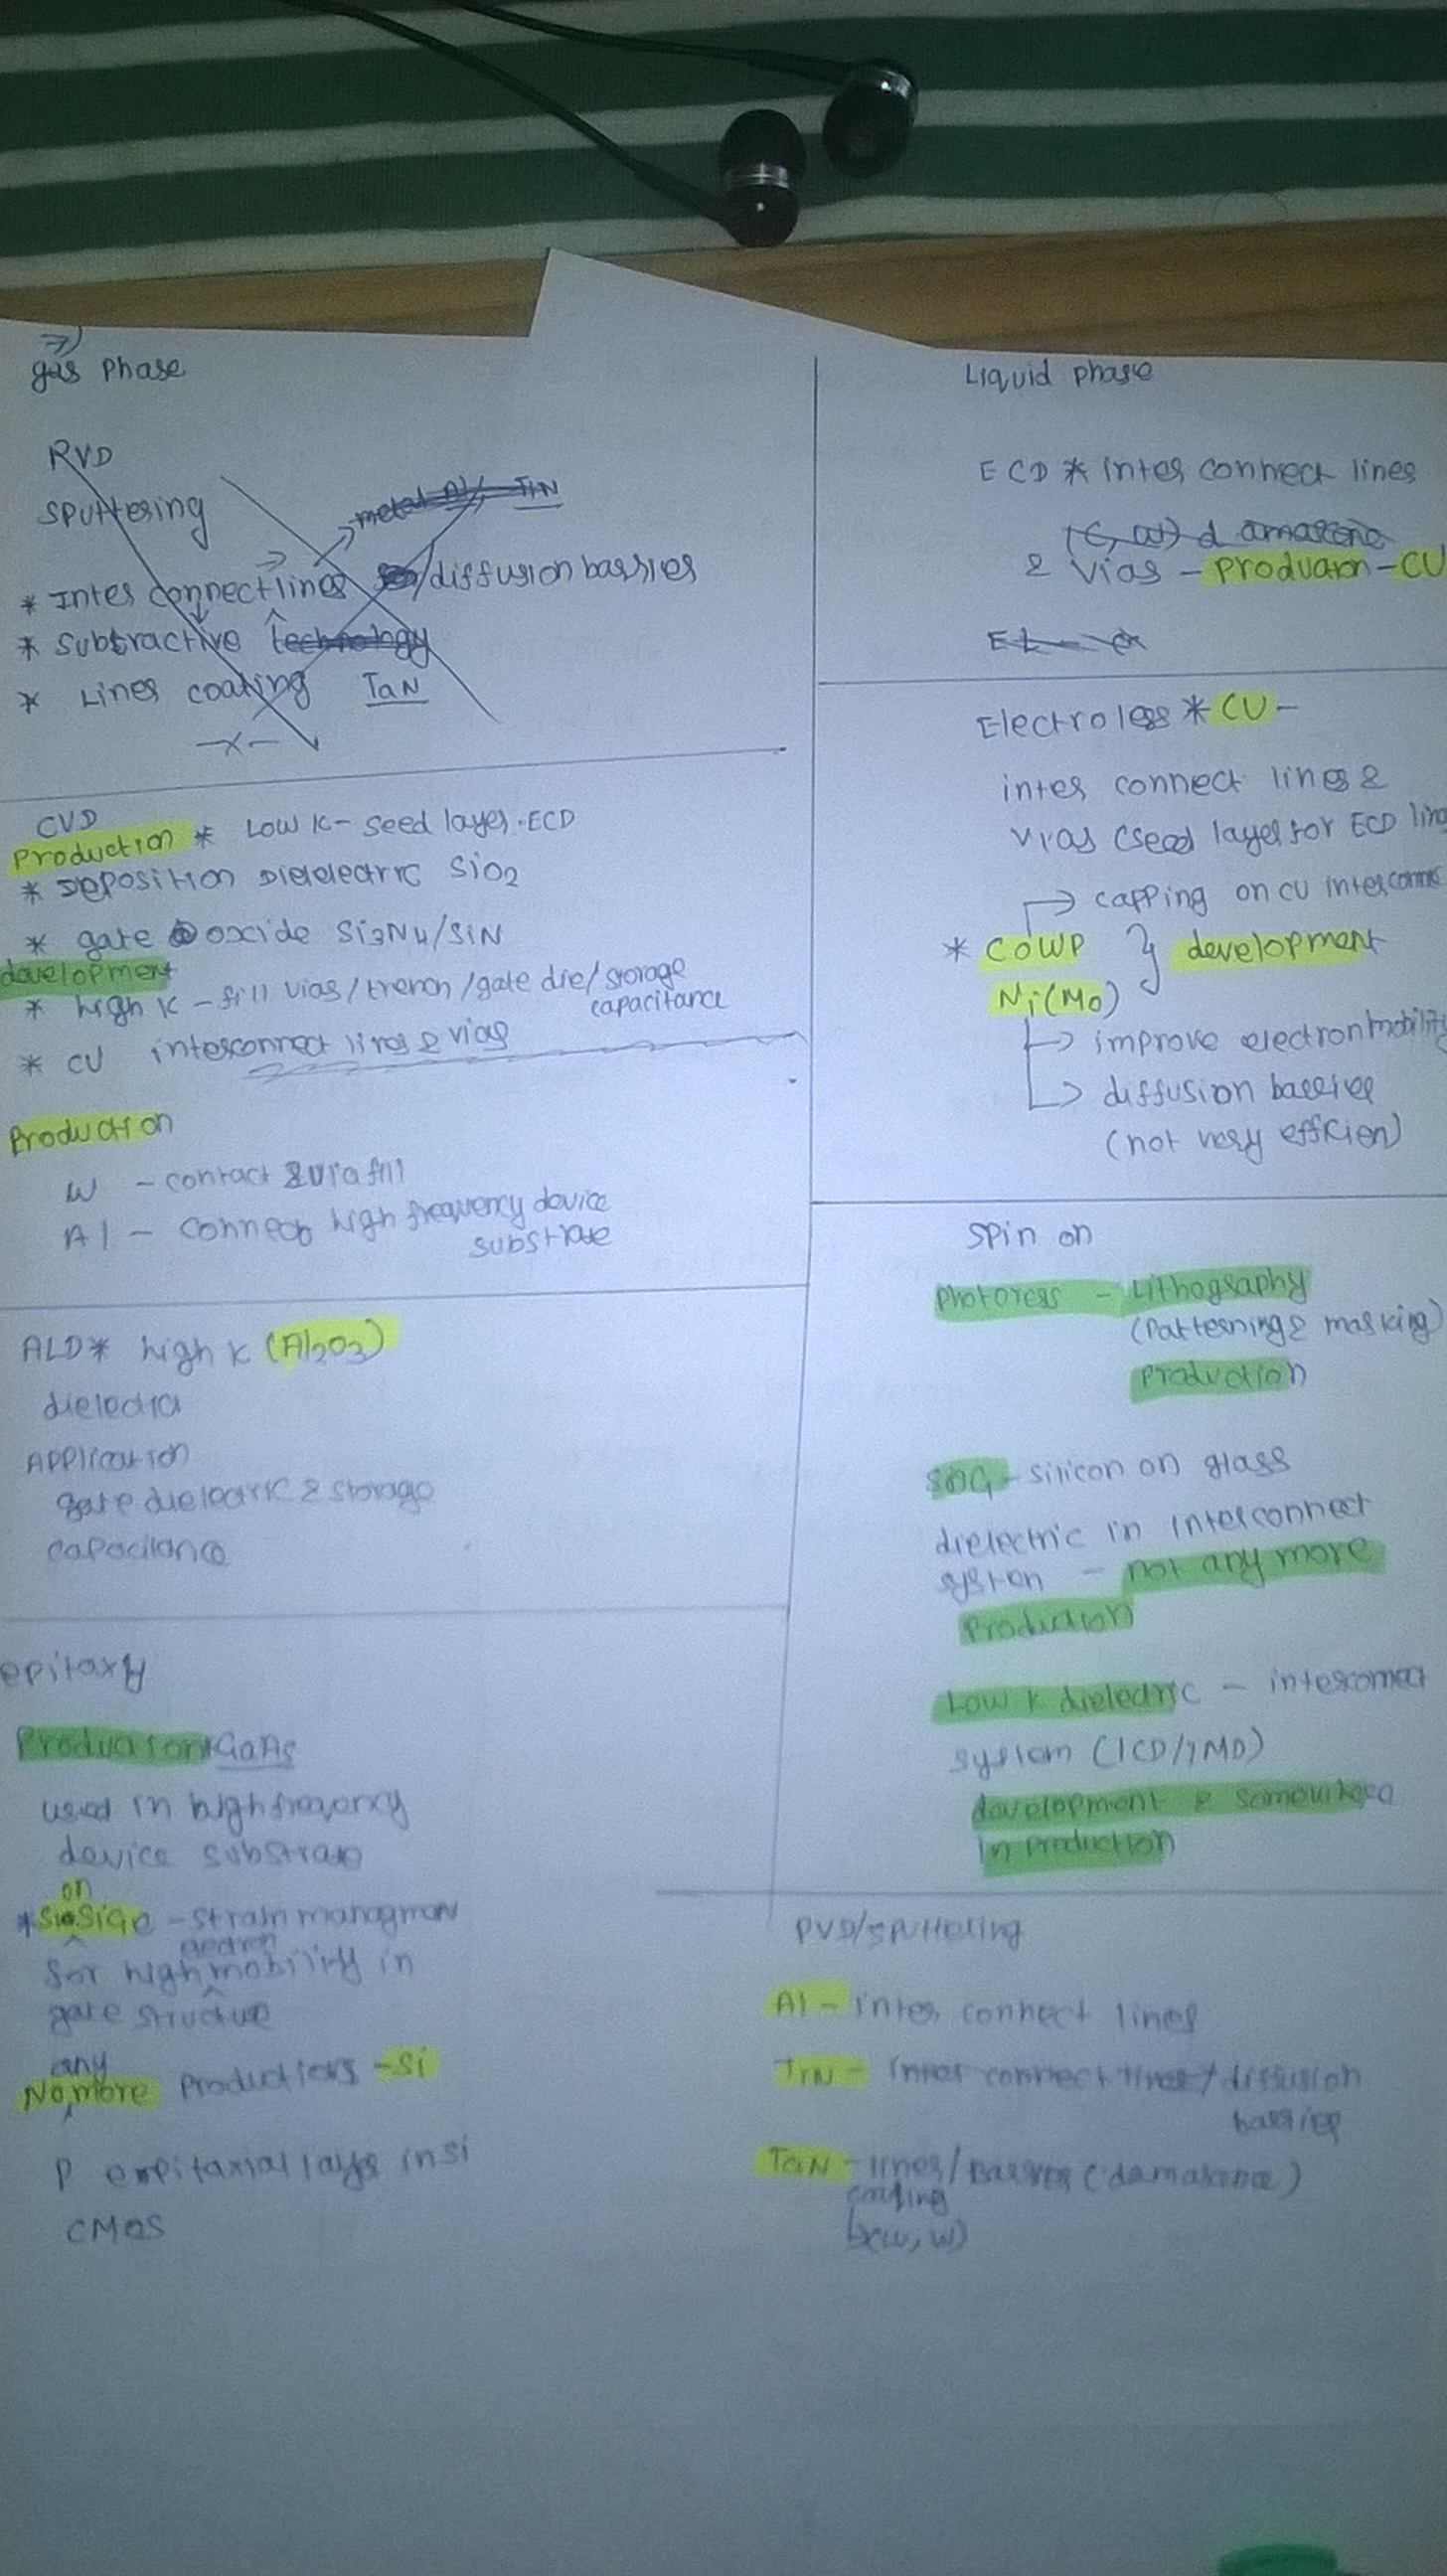 gas Phase
PVD
Sputtering
* Inter connect lines /diffusion barrier
* Subtractive technology
* Lines coating TaN
-x-
CVD
Production * Low K- seed layer. ECD
* Deposition Dielelectric SiO2
* gate oxcide Si3N4/SiN
development
* high K - fill vias/trench/gate die/storage
capacitance
* CU interconnect lines & vias
Production
W - contact & via fill
Al - connect high frequency device
substrate
ALD* high K (Al2O3)
dielectric
Application
gate dielectric & storage
capacitance
epitaxy
Production * GaAs
used in high frequency
device substrate
on
* Si SiGe - strain managment
for high mobility in
gate structure
any
No more productions - Si
P epitaxial layer in Si
CMOS
Liquid phase
ECD * inter connect lines
& Vias - production - CU
Electroless * CU -
inter connect lines &
vias (seed layer for ECD
capping on CU
* COWP } development
Ni(Mo)
improve electron mobility
diffusion barrier
(not very efficien)
Spin on
Photoress - Lithography
(Patterning & masking)
Production
SOG - silicon on glass
dielectric in interconnect
system - not any more
Production
Low K dielectric - interconnect
system (ICD/IMD)
development &
in production
PVD/Sputtering
Al - inter connect lines
TiN - inter connect lines / diffusion
barrier
TaN - lines/barrier (damascene)
coating